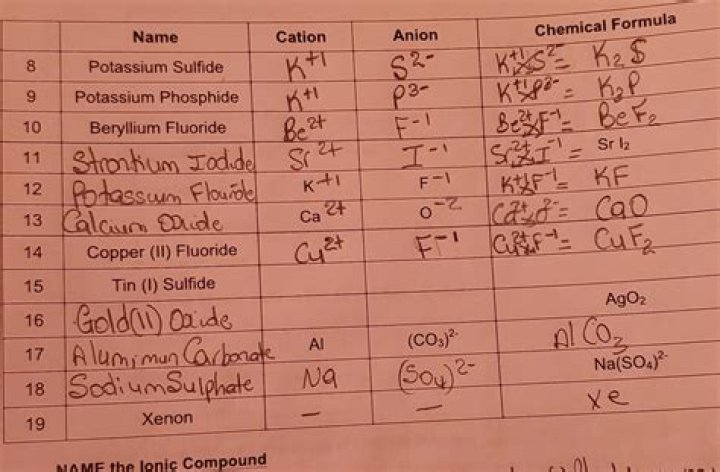 Name Cation Anion Chemical Formula
8 Potassium Sulfide K+1 S2- K+1 S2- = K2S
9 Potassium Phosphide K+1 P3- K+1 P3- = K2P
10 Beryllium Fluoride Be2+ F-1 Be2+ F-1 = BeF2
11 Strontium Iodide Sr2+ I-1 Sr2+ I-1 = SrI2
12 Potassium Flouride K+1 F-1 K+1 F-1 = KF
13 Calcium Oxide Ca2+ O-2 Ca2+ O2- = CaO
14 Copper (II) Fluoride Cu2+ F-1 Cu2+ F-1 = CuF2
15 Tin (I) Sulfide
16 Gold(II) Oxide AgO2
17 Alumimun Carbonate Al (CO3)2- AlCO3
18 Sodium Sulphate Na (SO4)2- Na(SO4)2-
19 Xenon — — Xe
NAME the Ionic Compound